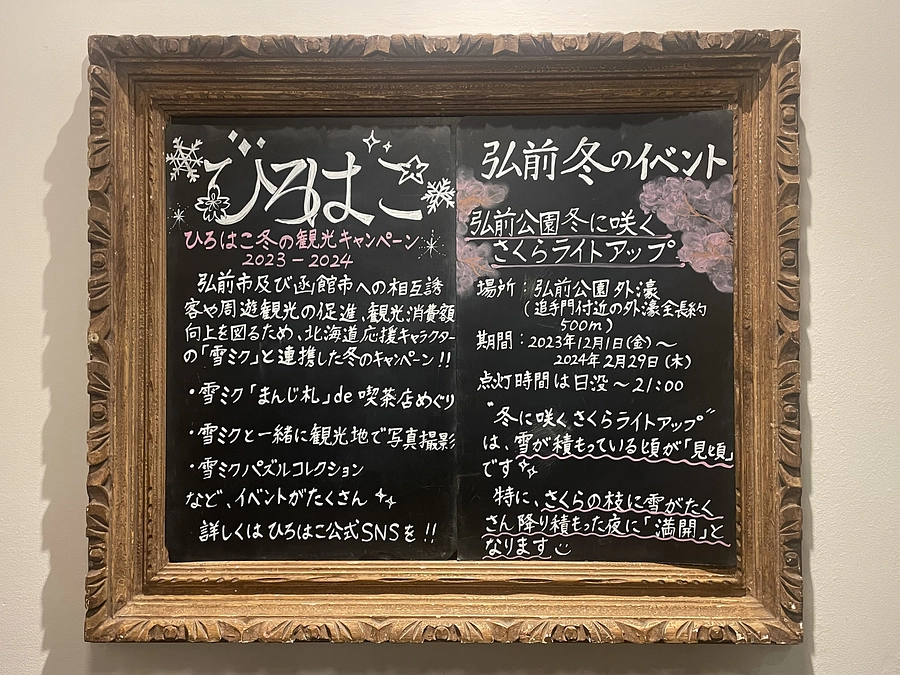 ひろはこ
ひろはこ冬の観光キャンペーン
2023-2024
弘前市及び函館市への相互誘
客や周遊観光の促進、観光消費額
向上を図るため、北海道応援キャラクター
の「雪ミク」と連携した冬のキャンペーン!!
・雪ミク「まんじ札」de喫茶店めぐり
・雪ミクと一緒に観光地で写真撮影
・雪ミクパズルコレクション
など、イベントがたくさん
詳しくはひろはこ公式SNSを!!
弘前冬のイベント
弘前公園冬に咲く
さくらライトアップ
場所:弘前公園外濠
(追手門付近の外濠全長約
500m)
期間:2023年12月1日(金)~
2024年2月29日(木)
点灯時間は日没~21:00
"冬に咲くさくらライトアップ"
は、雪が積もっている頃が「見頃」
です
特に、さくらの枝に雪がたく
さん降り積もった夜に「満開」と
なります